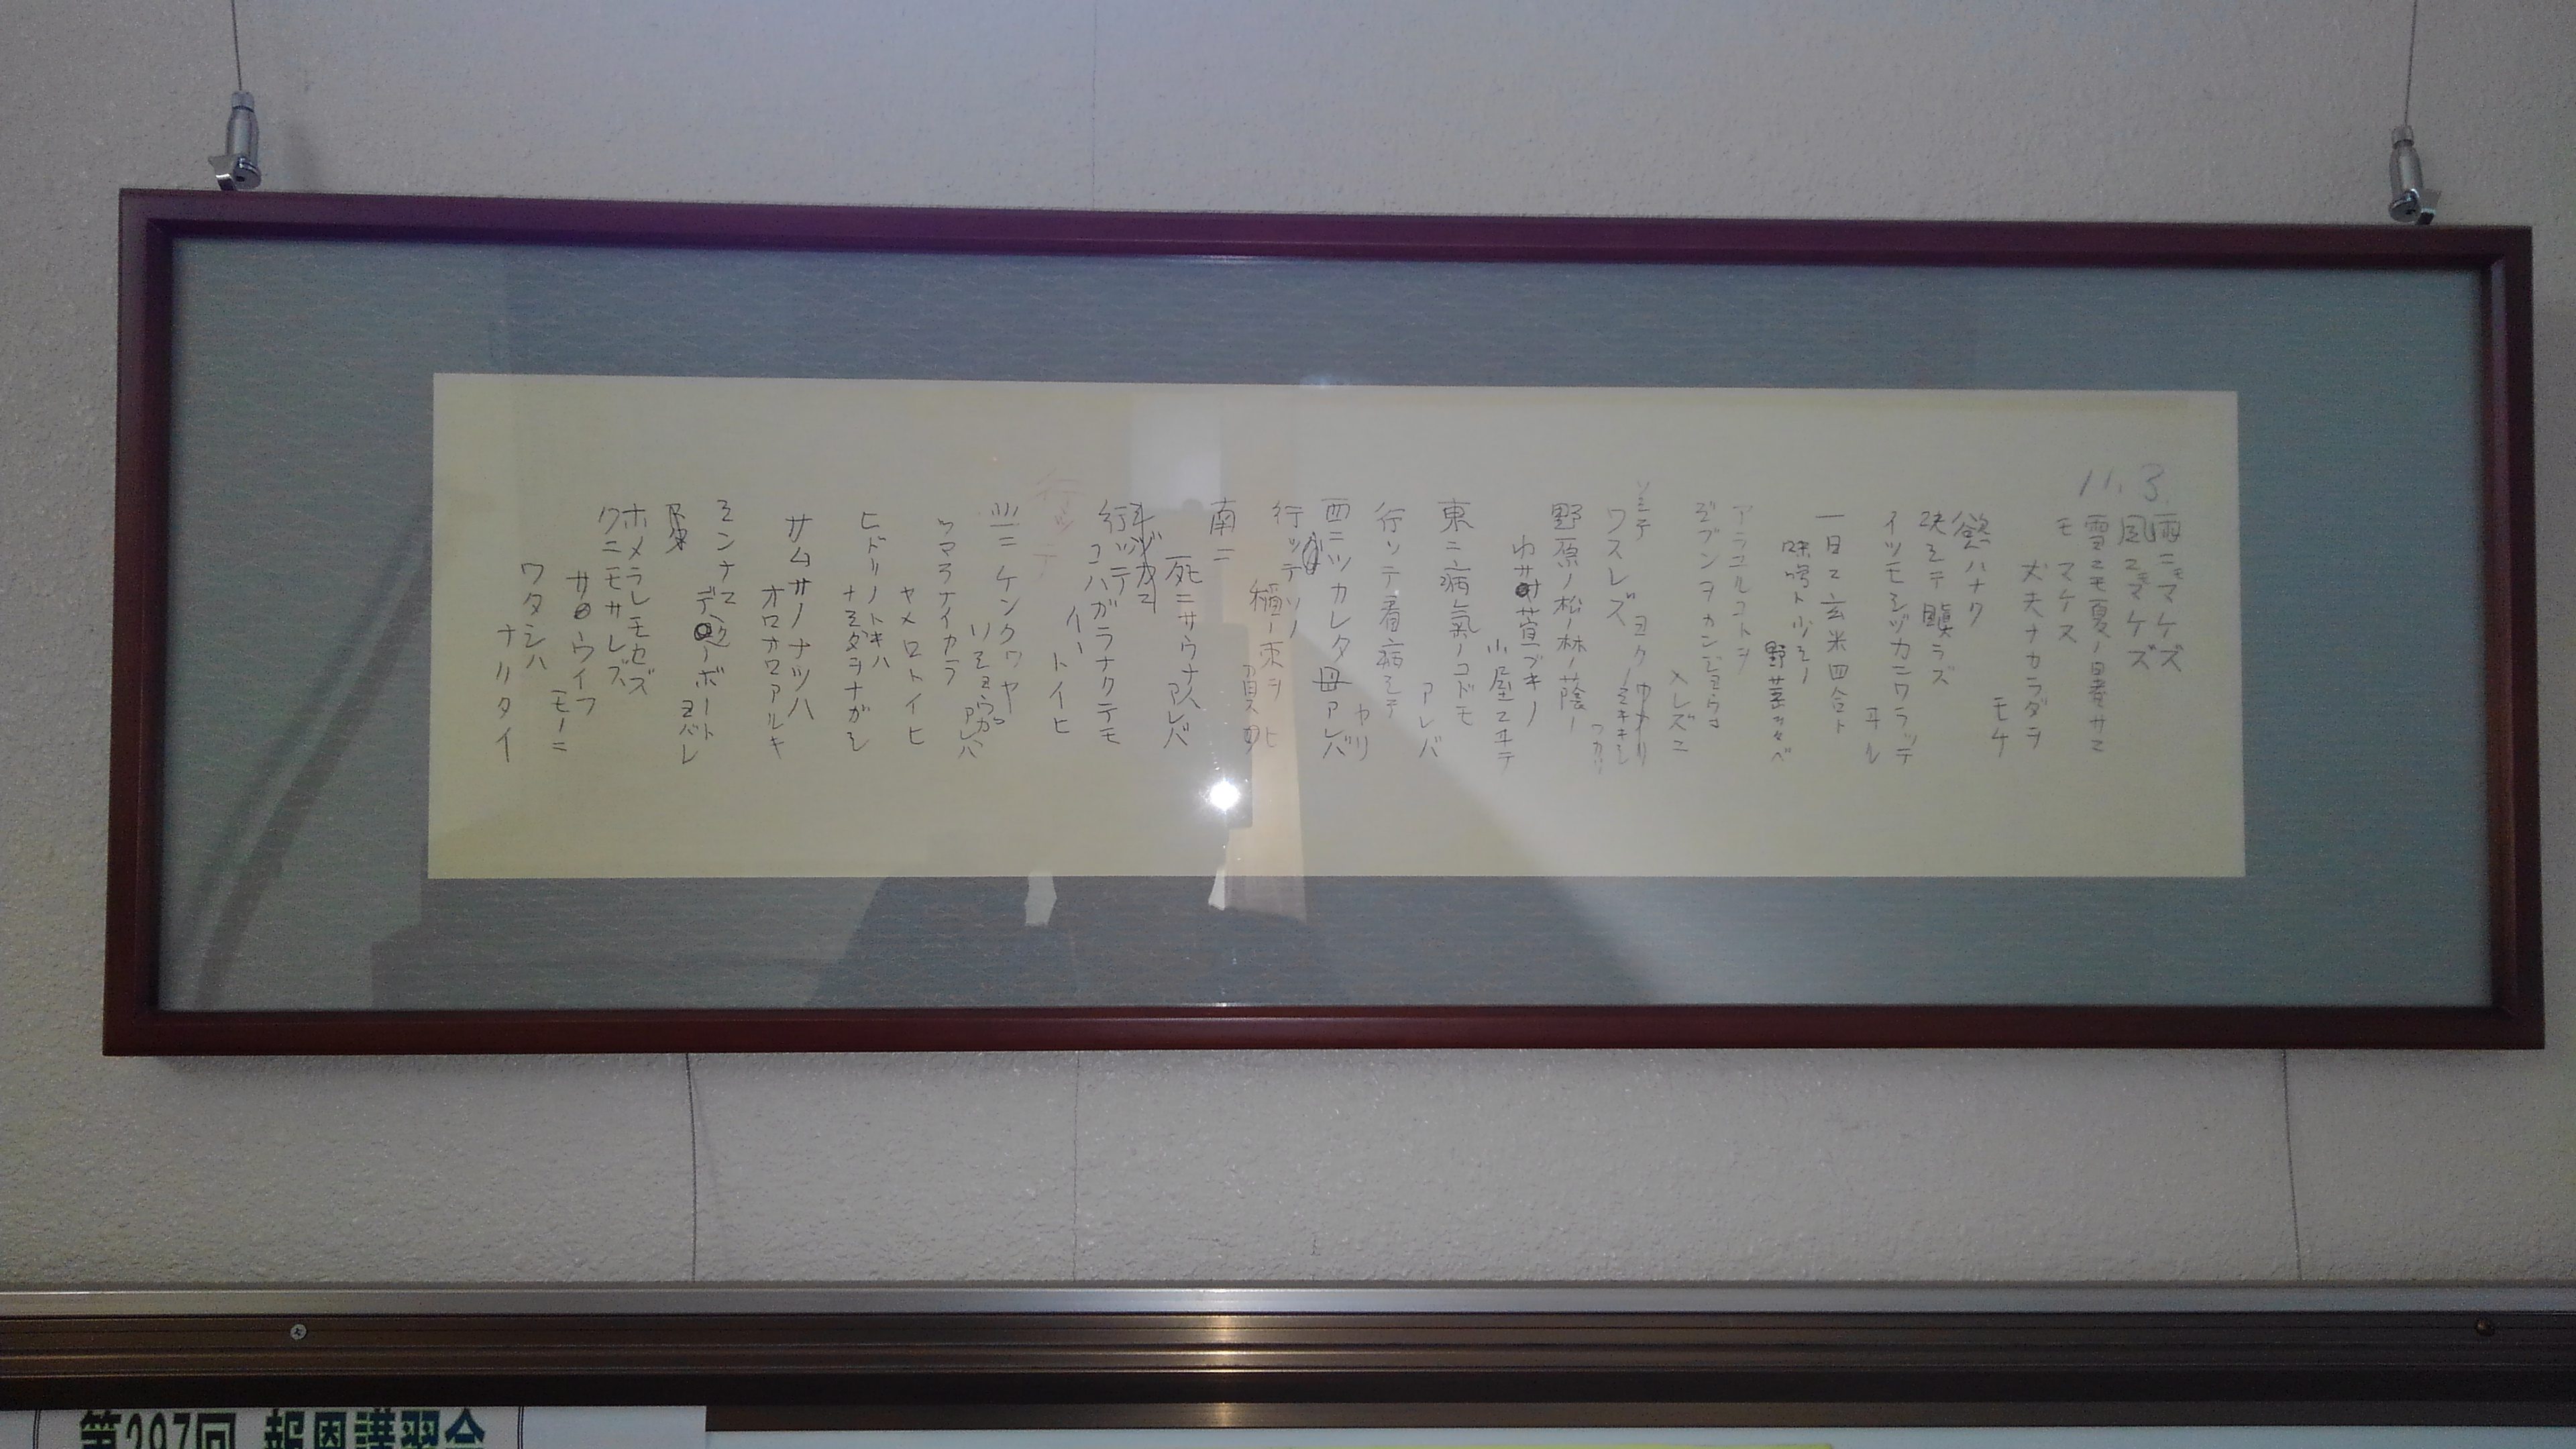 11.3.
雨ニモマケズ
風ニモマケズ
雪ニモ夏ノ暑サニ
モマケズ
丈夫ナカラダヲ
モチ
慾ハナク
決シテ瞋ラズ
イツモシヅカニワラッテ
ヰル
一日ニ玄米四合ト
味噌ト少シノ
野菜ヲタベ
アラユルコトヲ
ジブンヲカンジョウニ
入レズニ
ヨクミキキシ
ワカリ
ソシテ
ワスレズ
野原ノ松ノ林ノ蔭ノ
小サナ萓ブキノ
小屋ニヰテ
東ニ病氣ノコドモ
アレバ
行ッテ看病シテ
ヤリ
西ニツカレタ母アレバ
行ッテソノ
稲ノ束ヲ
負ヒ
南ニ
死ニサウナ人
アレバ
行ッテ
コハガラナクテモ
イヽ
トイヒ
北ニケンクヮヤ
ソショウガ
アレバ
ツマラナイカラ
ヤメロトイヒ
ヒドリノトキハ
ナミダヲナガシ
サムサノナツハ
オロオロアルキ
ミンナニ
デクノボート
ヨバレ
ホメラレモセズ
クニモサレズ
サウイフ
モノニ
ワタシハ
ナリタイ
第297回 報恩講習会